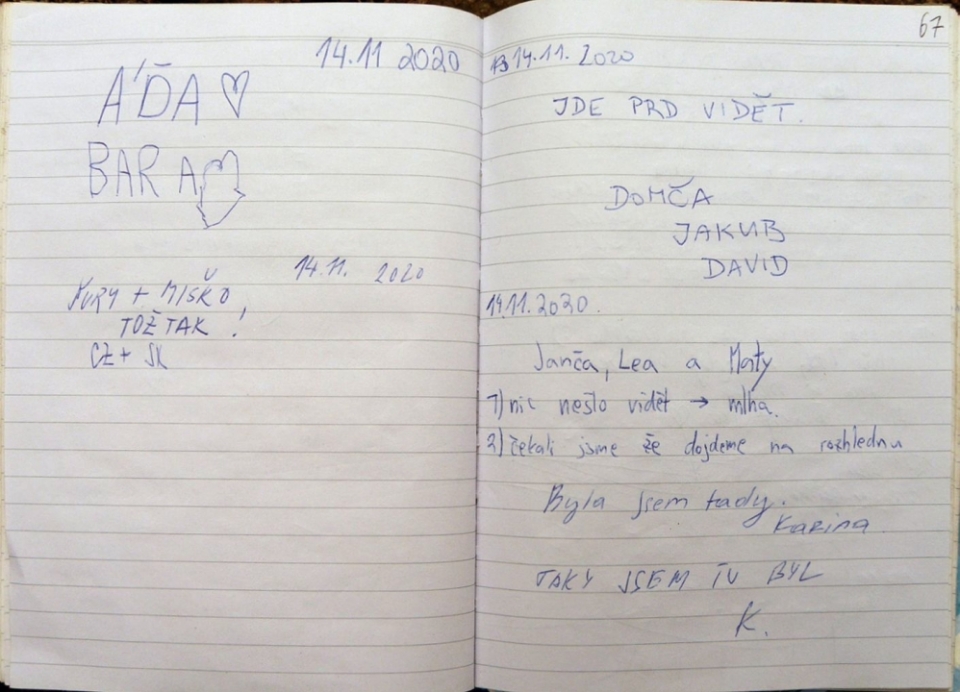 14.11 2020
ÁĎA
BARA
14.11. 2020
+ MIŠKO
TOŽ TAK !
CZ + SK
67
14.11. 2020
JDE PRD VIDĚT.
DOMČA
JAKUB
DAVID
14.11.2020.
Janča, Lea a Maty
1) nic nešlo vidět → mlha.
2) čekali jsme že dojdeme na rozhlednu
Byla jsem tady.
Karina
TAKY JSEM TU BYL
K.